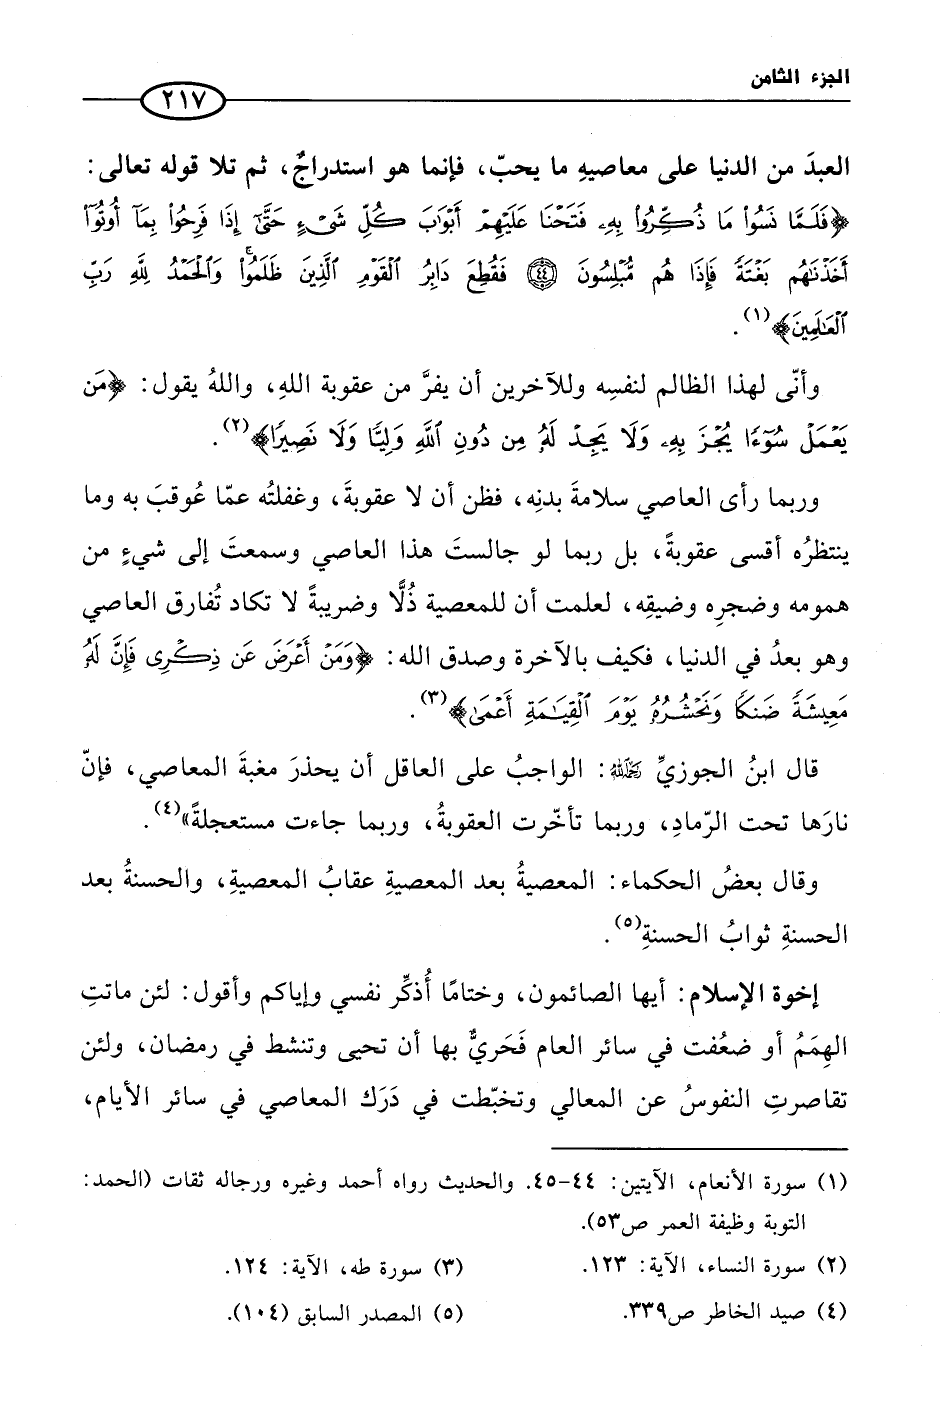 الجزء الثامن
٢١٧
العبدَ من الدنيا على معاصيهِ ما يحبّ، فإنما هو استدراجٌ، ثم تلا قوله تعالى:
﴿فَلَمَّا نَسُوا۟ مَا ذُكِّرُوا۟ بِهِۦ فَتَحْنَا عَلَيْهِمْ أَبْوَٰبَ كُلِّ شَىْءٍ حَتَّىٰٓ إِذَا فَرِحُوا۟ بِمَآ أُوتُوٓا۟
أَخَذْنَٰهُم بَغْتَةً فَإِذَا هُم مُّبْلِسُونَ ﴿٤٤﴾ فَقُطِعَ دَابِرُ ٱلْقَوْمِ ٱلَّذِينَ ظَلَمُوا۟ ۚ وَٱلْحَمْدُ لِلَّهِ رَبِّ
ٱلْعَٰلَمِينَ﴾(١).
وأنّى لهذا الظالم لنفسِه وللآخرين أن يفرَّ من عقوبة اللهِ، واللهُ يقول: ﴿مَن
يَعْمَلْ سُوٓءًا يُجْزَ بِهِۦ وَلَا يَجِدْ لَهُۥ مِن دُونِ ٱللَّهِ وَلِيًّا وَلَا نَصِيرًا﴾(٢).
وربما رأى العاصي سلامةَ بدنِه، فظن أن لا عقوبةَ، وغفلتُه عمّا عُوقبَ به وما
ينتظرُه أقسى عقوبةً، بل ربما لو جالستَ هذا العاصي وسمعتَ إلى شيءٍ من
همومه وضجرِه وضيقِه، لعلمت أن للمعصية ذُلًّا وضريبةً لا تكاد تُفارق العاصي
وهو بعدُ في الدنيا، فكيف بالآخرة وصدق الله: ﴿وَمَنْ أَعْرَضَ عَن ذِكْرِى فَإِنَّ لَهُۥ
مَعِيشَةً ضَنكًا وَنَحْشُرُهُۥ يَوْمَ ٱلْقِيَٰمَةِ أَعْمَىٰ﴾(٣).
قال ابنُ الجوزيِّ رحمه الله: الواجبُ على العاقل أن يحذرَ مغبةَ المعاصي، فإنّ
نارَها تحت الرّمادِ، وربما تأخّرت العقوبةُ، وربما جاءت مستعجلةً»(٤).
وقال بعضُ الحكماء: المعصيةُ بعد المعصيةِ عقابُ المعصيةِ، والحسنةُ بعد
الحسنةِ ثوابُ الحسنةِ(٥).
إخوة الإسلام: أيها الصائمون، وختامًا أُذكِّر نفسي وإياكم وأقول: لئن ماتتِ
الهِمَمُ أو ضعُفت في سائر العام فَحَريٌّ بها أن تحيى وتنشط في رمضان، ولئن
تقاصرتِ النفوسُ عن المعالي وتخبّطت في دَرَك المعاصي في سائر الأيام،
(١) سورة الأنعام، الآيتين: ٤٤-٤٥. والحديث رواه أحمد وغيره ورجاله ثقات (الحمد:
التوبة وظيفة العمر ص٥٣).
(٢) سورة النساء، الآية: ١٢٣.
(٣) سورة طه، الآية: ١٢٤.
(٤) صيد الخاطر ص٣٣٩.
(٥) المصدر السابق (١٠٤).